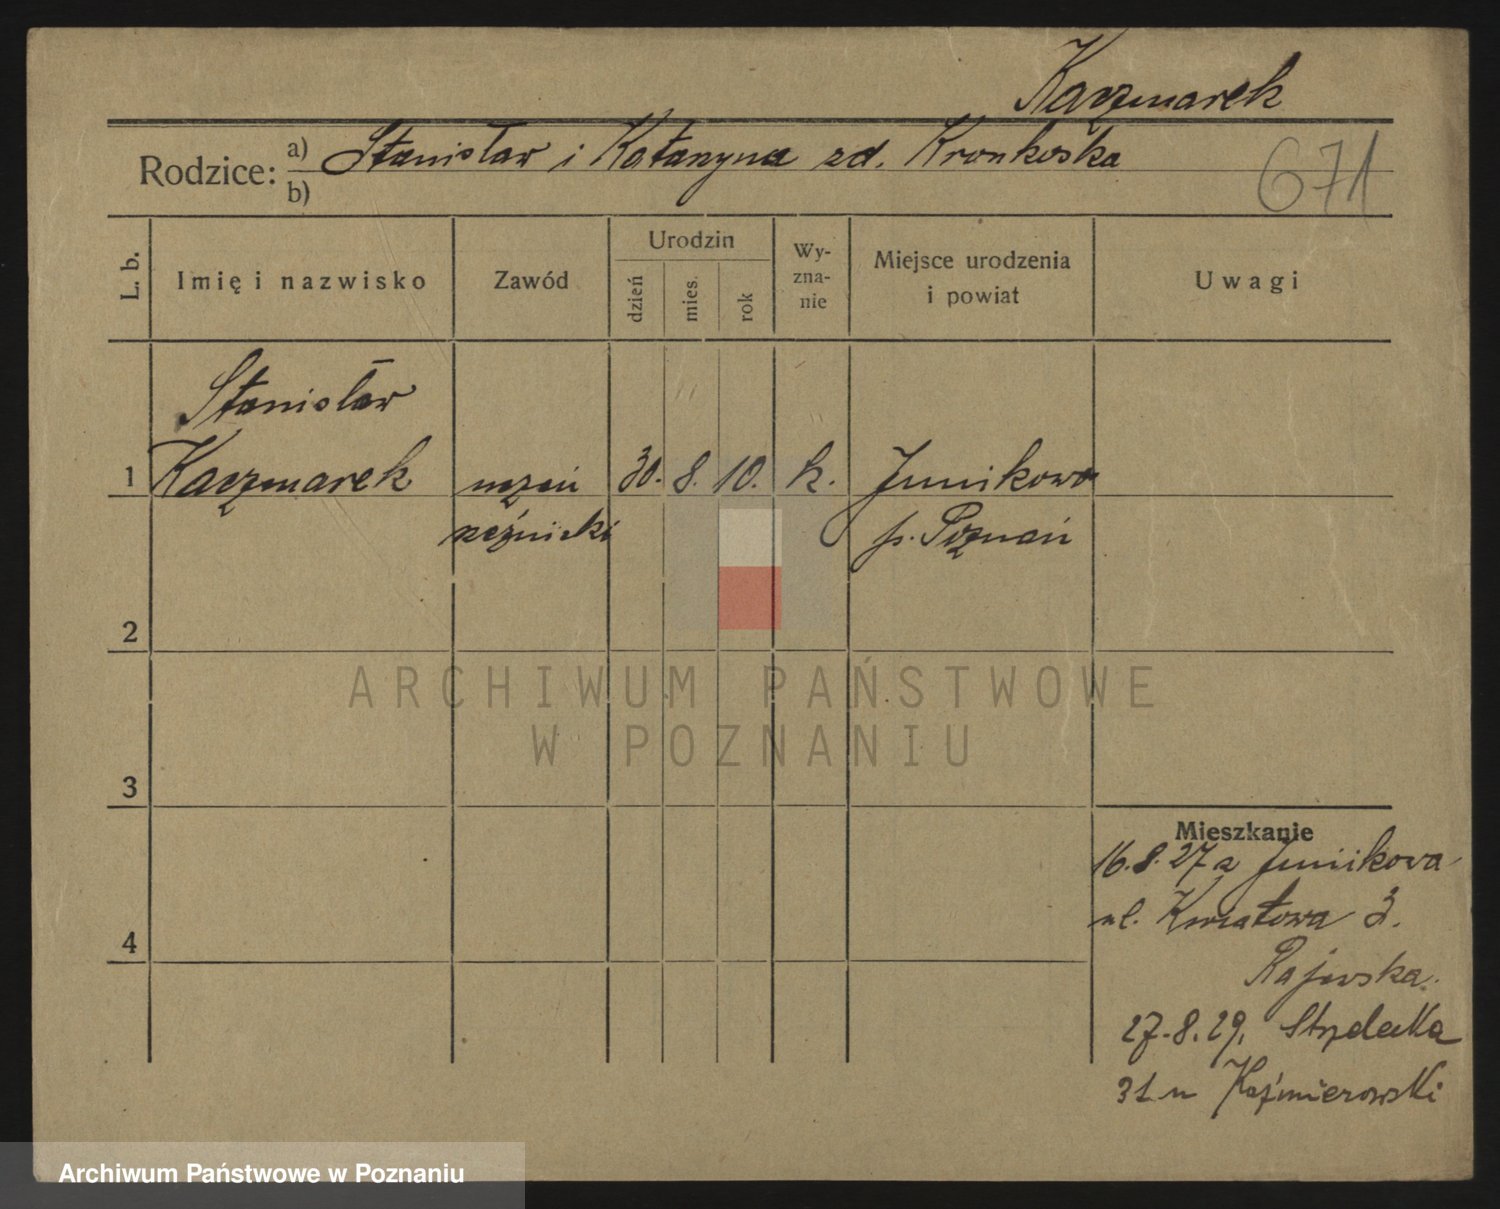 Kaczmarek
Rodzice: a) Stanisław i Katarzyna zd. Kronkoska
b)
671
L. b.
Imię i nazwisko
Zawód
Urodzin
dzień
mies.
rok
Wy-
zna-
nie
Miejsce urodzenia
i powiat
Uwagi
Stanisław
1 Kaczmarek uczeń 30. 8. 10. k. Junikowo
rzeźnicki p. Poznań
2
ARCHIWUM PAŃSTWOWE
W POZNANIU
3
Mieszkanie
16.8.27 z Junikowa
ul. Kwiatowa 3.
4
Rajewska.
27.8.29. Strzelecka
31 u Kaźmierowski
Archiwum Państwowe w Poznaniu